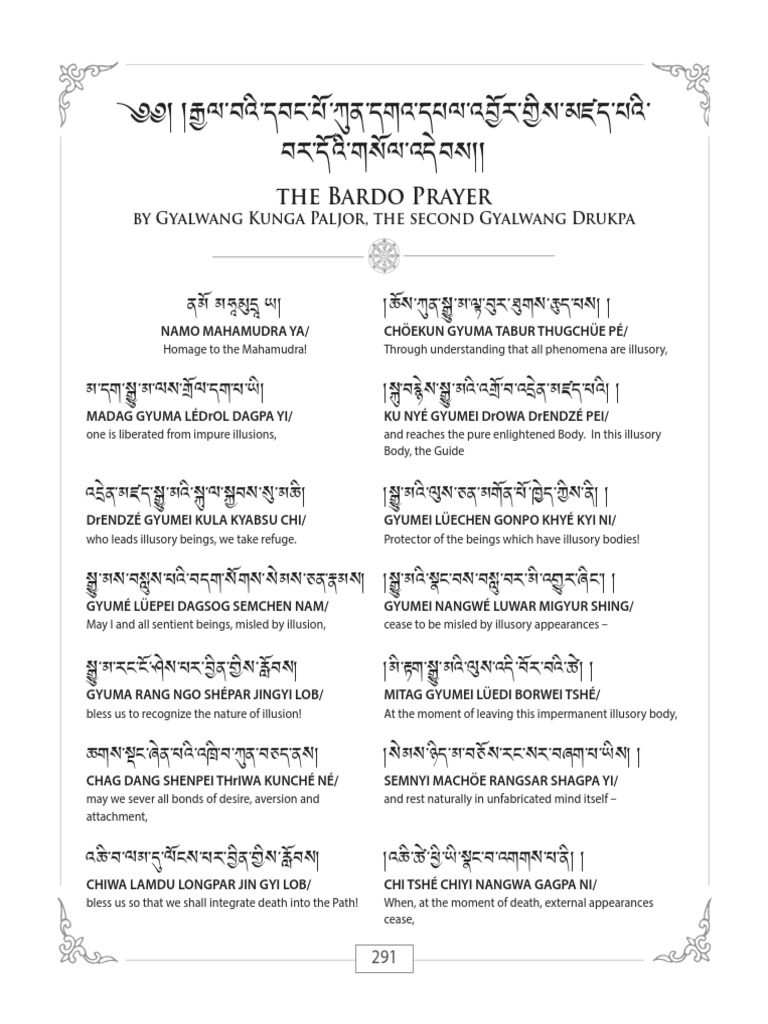 ༄༅། །རྒྱལ་བའི་དབང་པོ་ཀུན་དགའ་དཔལ་འབྱོར་གྱིས་མཛད་པའི་
བར་དོའི་གསོལ་འདེབས།།
THE BARDO PRAYER
BY GYALWANG KUNGA PALJOR, THE SECOND GYALWANG DRUKPA
ན་མོ་ མ་ཧཱ་མུ་དྲཱ་ ཡ།
NAMO MAHAMUDRA YA/
Homage to the Mahamudra!
།ཆོས་ཀུན་སྒྱུ་མ་ལྟ་བུར་ཐུགས་ཆུད་པས། །
CHÖEKUN GYUMA TABUR THUGCHÜE PÉ/
Through understanding that all phenomena are illusory,
མ་དག་སྒྱུ་མ་ལས་གྲོལ་དག་པ་ཡི།
MADAG GYUMA LÉDrOL DAGPA YI/
one is liberated from impure illusions,
།སྐུ་བརྙེས་སྒྱུ་མའི་འགྲོ་བ་འདྲེན་མཛད་པའི། །
KU NYÉ GYUMEI DrOWA DrENDZÉ PEI/
and reaches the pure enlightened Body. In this illusory
Body, the Guide
འདྲེན་མཛད་སྒྱུ་མའི་སྐུ་ལ་སྐྱབས་སུ་མཆི།
DrENDZÉ GYUMEI KULA KYABSU CHI/
who leads illusory beings, we take refuge.
།སྒྱུ་མའི་ལུས་ཅན་མགོན་པོ་ཁྱེད་ཀྱིས་ནི། །
GYUMEI LÜECHEN GONPO KHYÉ KYI NI/
Protector of the beings which have illusory bodies!
སྒྱུ་མས་བསླུས་པའི་བདག་སོགས་སེམས་ཅན་རྣམས།
GYUMÉ LÜEPEI DAGSOG SEMCHEN NAM/
May I and all sentient beings, misled by illusion,
།སྒྱུ་མའི་སྣང་བས་བསླུ་བར་མི་འགྱུར་ཞིང་། །
GYUMEI NANGWÉ LUWAR MIGYUR SHING/
cease to be misled by illusory appearances –
སྒྱུ་མ་རང་ངོ་ཤེས་པར་བྱིན་གྱིས་རློབས།
GYUMA RANG NGO SHÉPAR JINGYI LOB/
bless us to recognize the nature of illusion!
།མི་རྟག་སྒྱུ་མའི་ལུས་འདི་བོར་བའི་ཚེ། །
MITAG GYUMEI LÜEDI BORWEI TSHÉ/
At the moment of leaving this impermanent illusory body,
ཆགས་སྡང་ཞེན་པའི་འཁྲི་བ་ཀུན་བཅད་ནས།
CHAG DANG SHENPEI THrIWA KUNCHÉ NÉ/
may we sever all bonds of desire, aversion and
attachment,
།སེམས་ཉིད་མ་བཅོས་རང་སར་བཞག་པ་ཡིས། །
SEMNYI MACHÖE RANGSAR SHAGPA YI/
and rest naturally in unfabricated mind itself –
འཆི་བ་ལམ་དུ་ལོངས་པར་བྱིན་གྱིས་རློབས།
CHIWA LAMDU LONGPAR JIN GYI LOB/
bless us so that we shall integrate death into the Path!
།འཆི་ཚེ་ཕྱི་ཡི་སྣང་བ་འགགས་པ་ནི། །
CHI TSHÉ CHIYI NANGWA GAGPA NI/
When, at the moment of death, external appearances
cease,
291